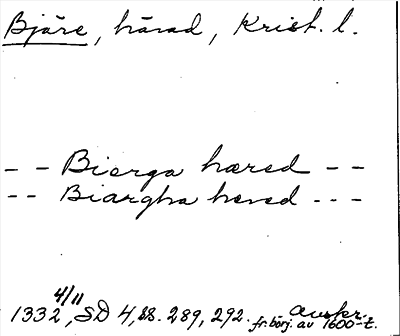 Bjäre, härad, Krist. l.
- - Bierga hæred - -
- - Biargha hæred - - -
1332 4/11, SD 4, ss. 289, 292. avskr. fr. börj. av 1600-t.